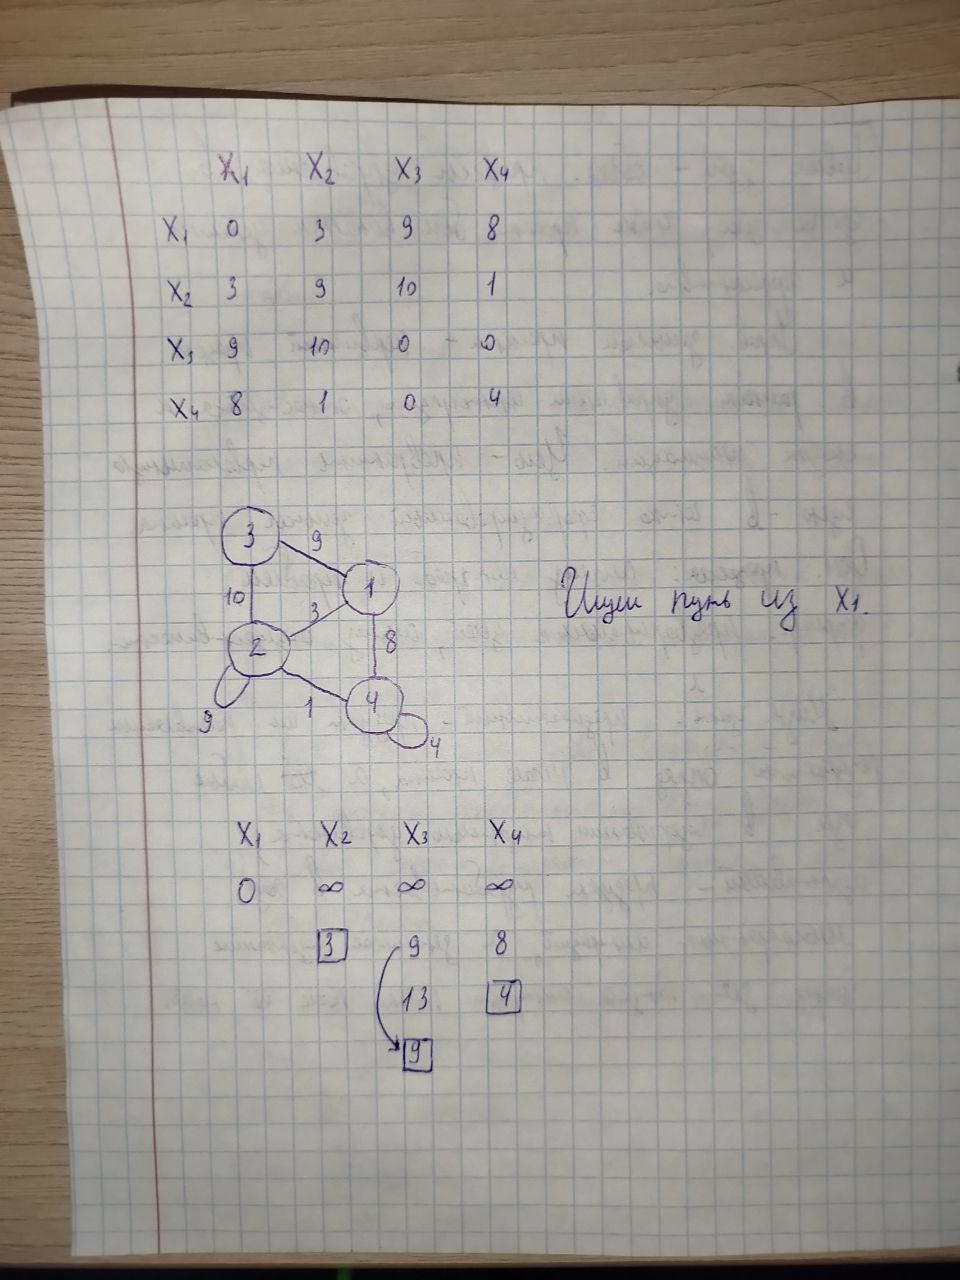 X1 X2 X3 X4
X1 0 3 9 8
X2 3 9 10 1
X3 9 10 0 0
X4 8 1 0 4
3 9
1
10 3
2 8
4
9 1 4
Ищем путь из X1.
X1 X2 X3 X4
0 ∞ ∞ ∞
3 9 8
13 4
9